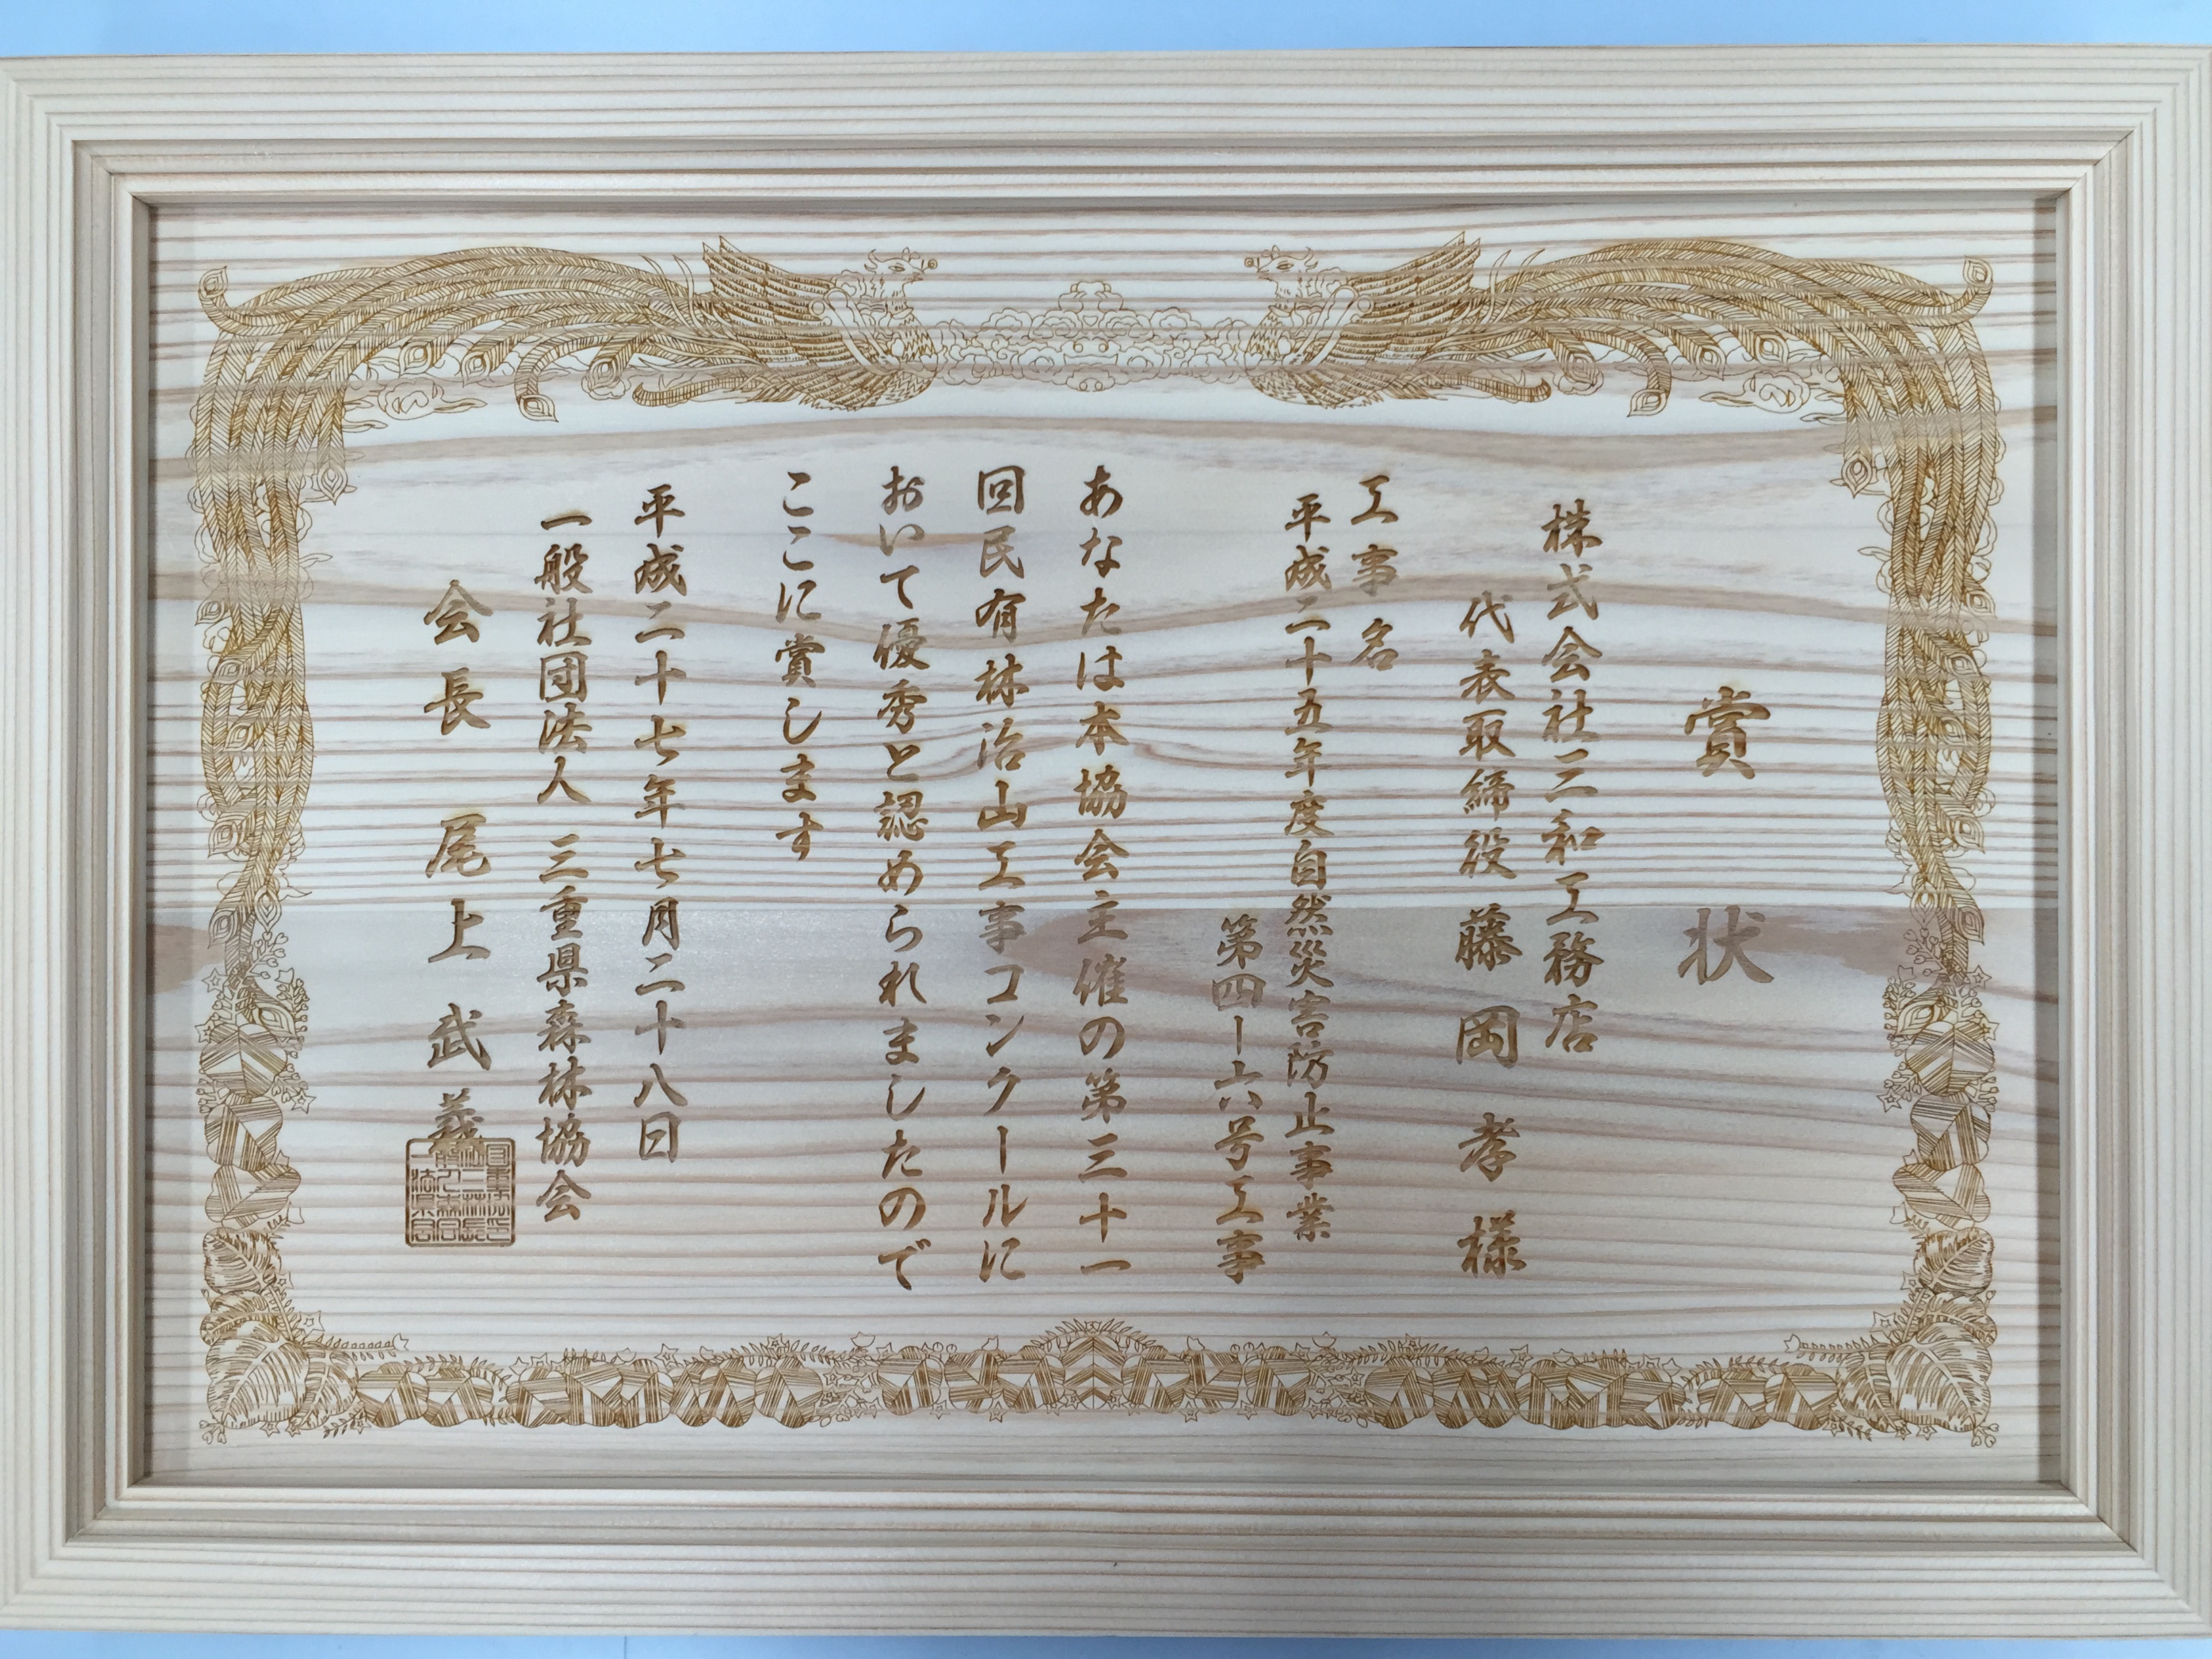 賞状
株式会社三和工務店
代表取締役 藤岡孝様
工事名
平成二十五年度自然災害防止事業
第四ー六号工事
あなたは本協会主催の第三十一
回民有林治山工事コンクールに
おいて優秀と認められましたので
ここに賞します
平成二十七年七月二十八日
一般社団法人 三重県森林協会
会長 尾上武義